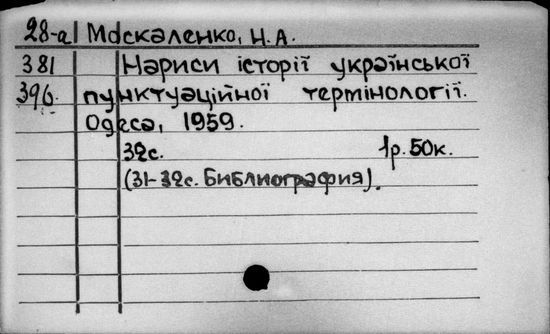 28-а Москаленко, Н.А.
381 Нариси історії української
396. пунктуаційної термінології.
Одеса, 1959.
32с. 1р.50к.
(31-32с. Библиография).